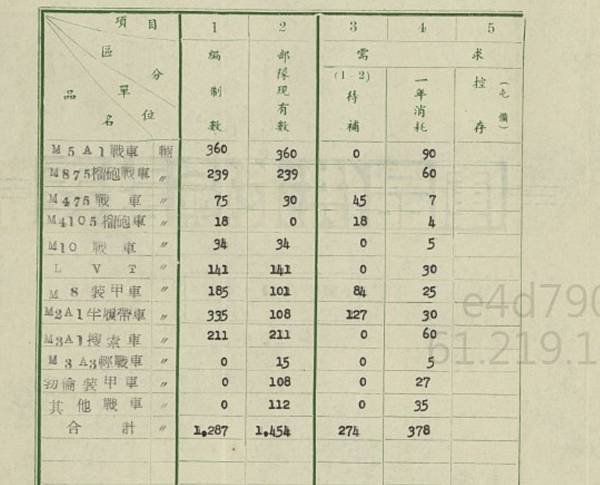 項目 1 2 3 4 5
區分 需求
單位 品名 編制數 部隊現有數 (1-2)待補 一年消耗 控存(屯備)
M5A1戰車 輛 360 360 0 90
M875榴砲戰車 〃 239 239 60
M475戰車 〃 75 30 45 7
M4105榴砲車 〃 18 0 18 4
M10戰車 〃 34 34 0 5
LVT 〃 141 141 0 30
M8裝甲車 〃 185 101 84 25
M2A1半履帶車 〃 335 108 127 30
M3A1搜索車 〃 211 211 0 60
M3A3輕戰車 〃 0 15 0 5
勃倫裝甲車 〃 0 108 0 27
其他戰車 〃 0 112 0 35
合計 〃 1,287 1,454 274 378
e4d790
61.219.1